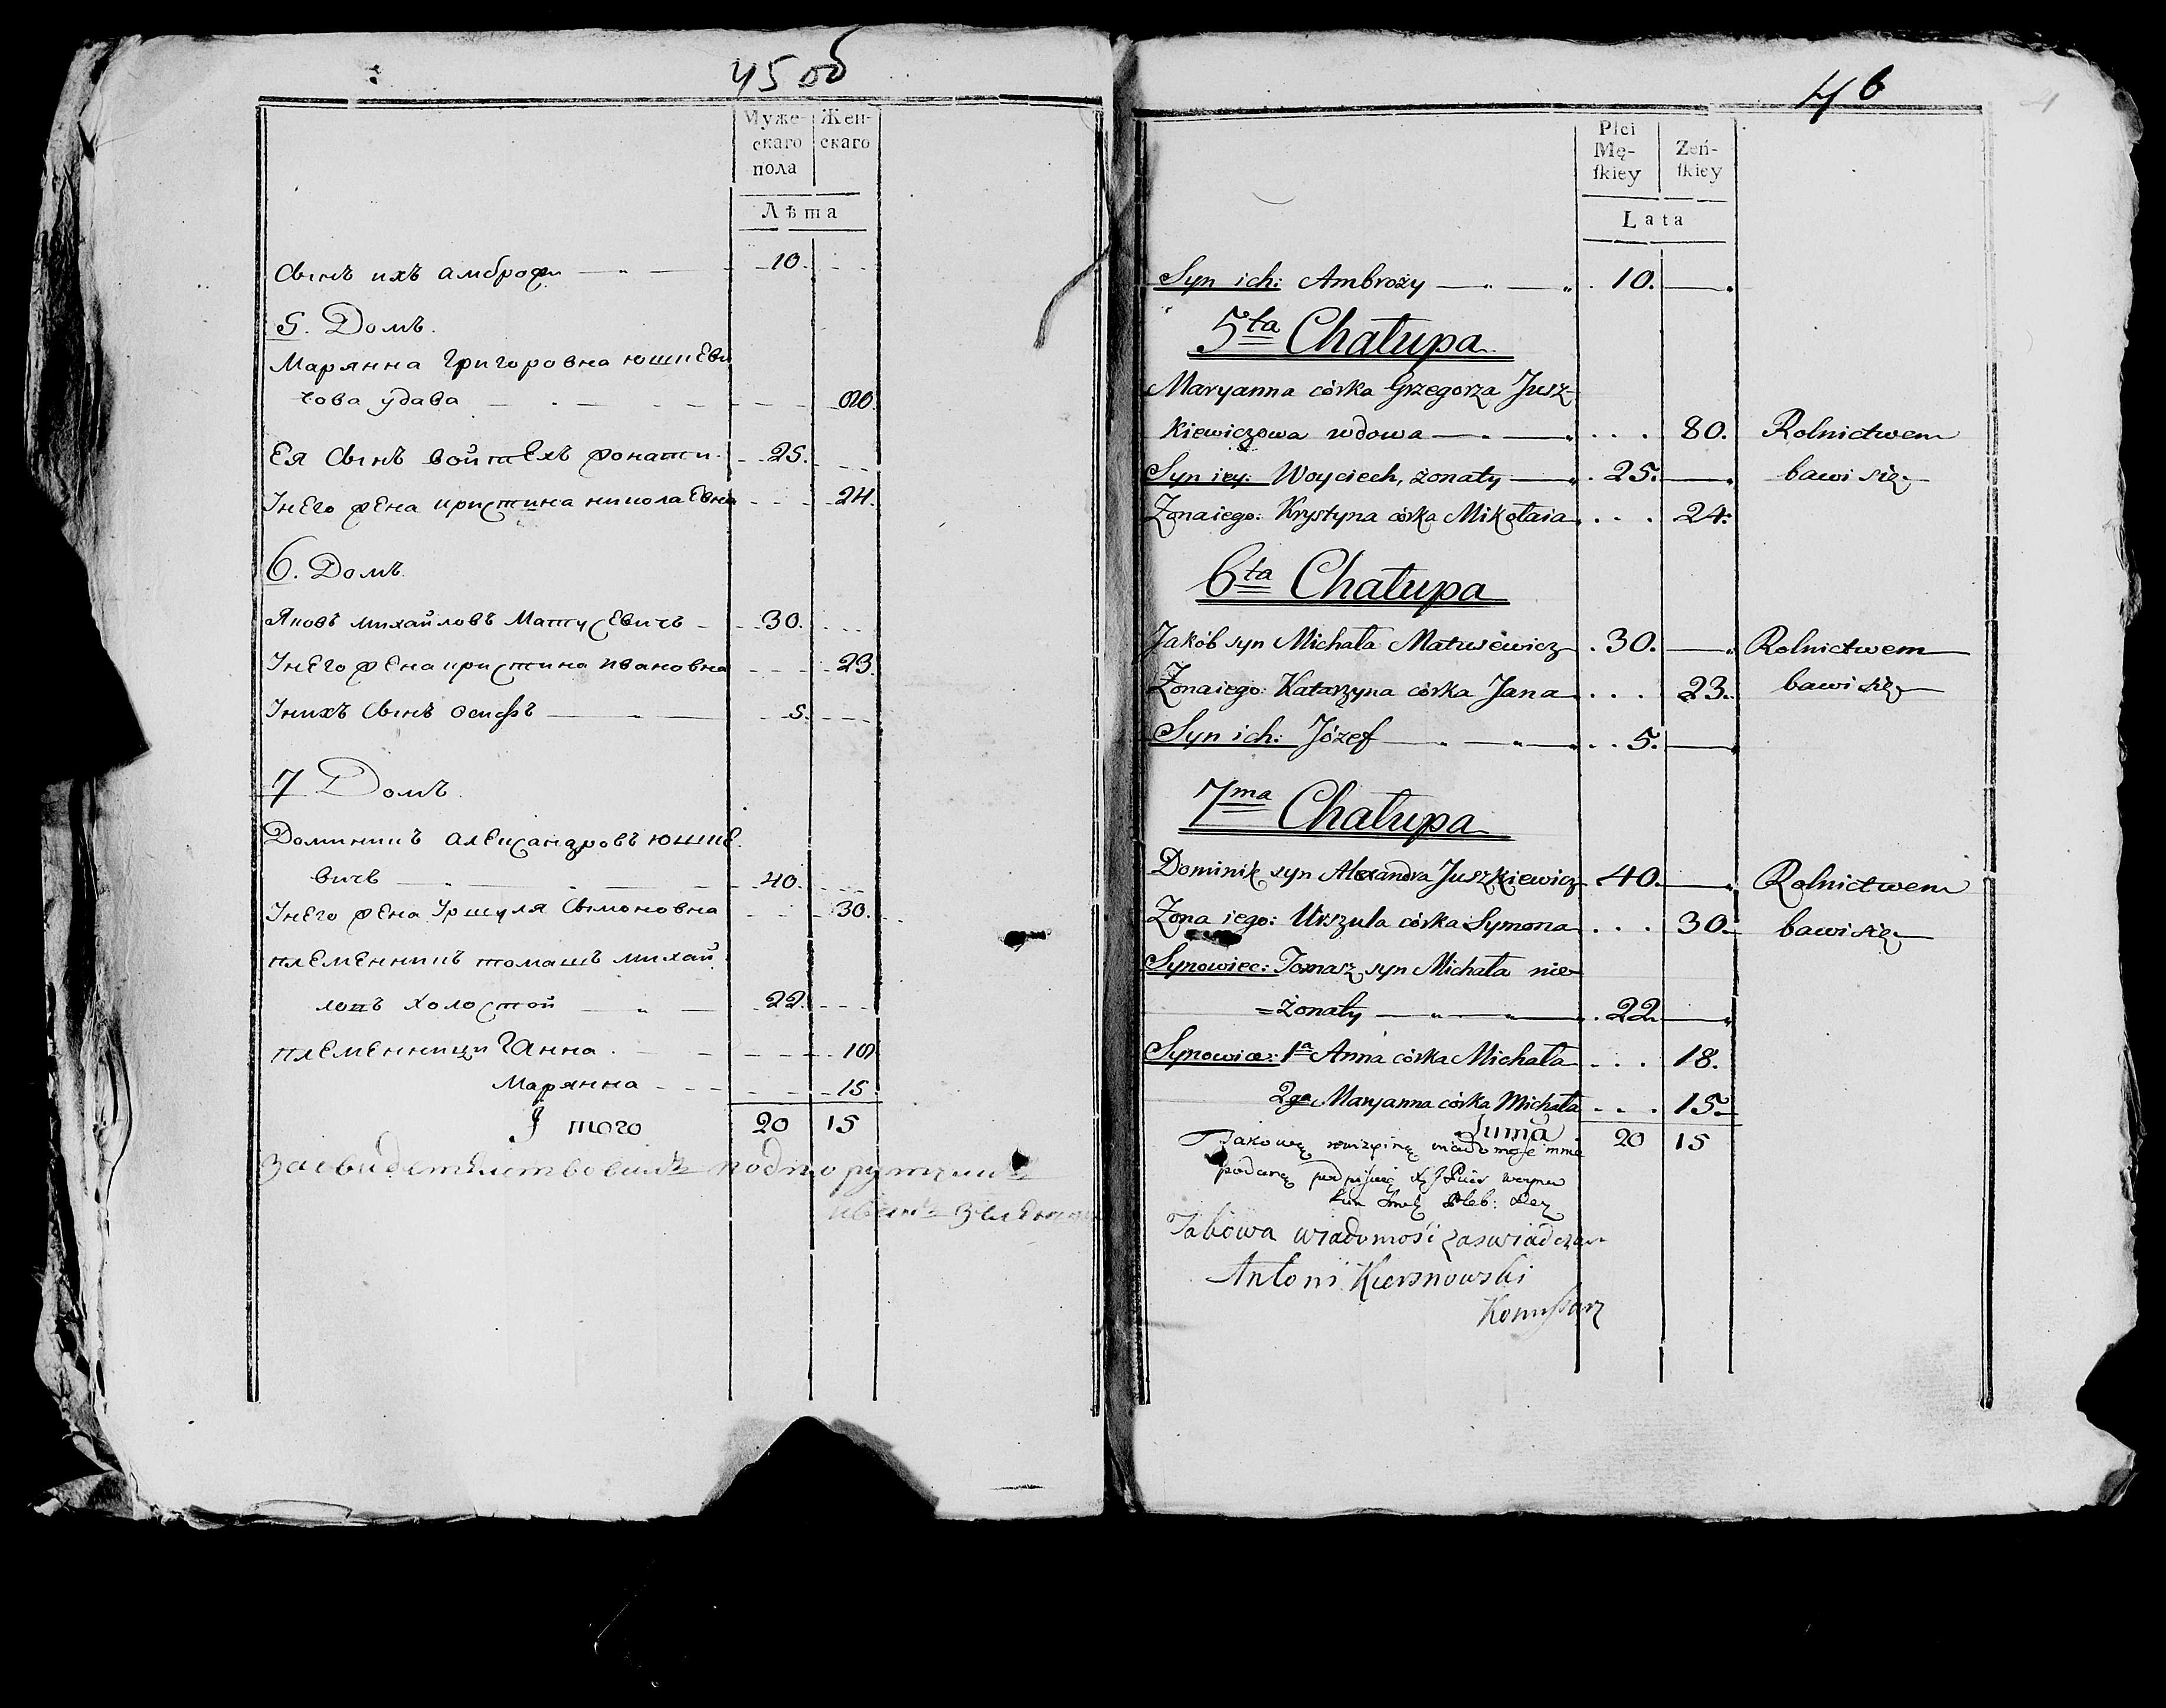 45 об
Муже-
скаго
пола
Жен-
скаго
Лѣта
Сынъ ихъ амброжи — 10.
5. Домъ.
Марянна Григоровна юшкеви
чова удава — 80.
Ея Сынъ войтехъ жонати. 25.
Інего жена кристина николаевна 24.
6. Домъ
Яковъ михайловъ Матусевичъ 30.
Інего жена кристина ивановна 23.
Інихъ Сынъ осифъ — 5.
7 Домъ
Доминикъ александровъ юшке
вичъ — 40.
Інего жена Уршуля Сымоновна 30.
племенникъ томашъ михай
ловъ холостой — 22.
племенници Ганна 18
Марянна 15
Итого 20 15
засвидетелствовалъ подпорутчикъ
иванъ
46
Płci
Mę-
ſkiey
Zeń-
ſkiey
Lata
Syn ich: Ambroży — 10. —
5ta Chałupa
Maryanna córka Grzegorza Jusz-
kiewiczowa wdowa — 80. Rolnictwem
Syn iey: Woyciech, żonaty — 25. — bawi się
Zona iego: Krystyna córka Mikołaia 24.
6ta Chałupa
Jakób syn Michała Matusewicz 30. — Rolnictwem
Zona iego: Katarzyna córka Jana 23. bawi się
Syn ich: Józef — 5. —
7ma Chałupa
Dominik syn Alexandra Juszkiewicz 40. — Rolnictwem
Zona iego: Urszula córka Symona 30. bawi się
Synowiec: Tomasz syn Michała nie-
=żonaty — 22 —
Synowice: 1a Anna córka Michała 18.
2ga Maryanna córka Michała 15.
Suma 20 15
Takowę
podanę podpisuię
Pleb:
Takowa wiadomość zaswiadczam
Antoni Kiersnowski
Komissarz